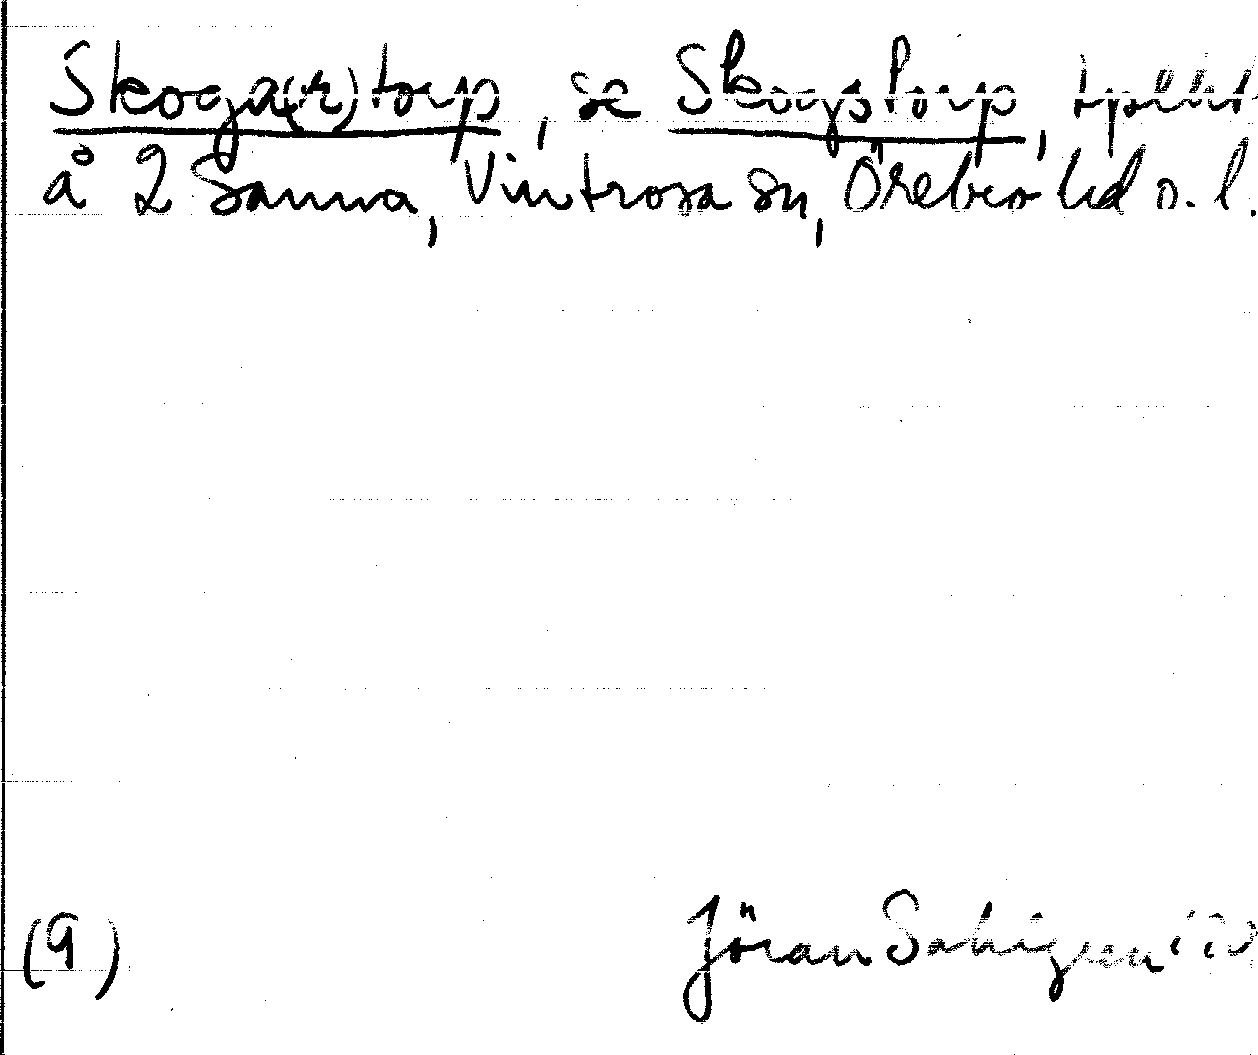 Skoga(r)torp, se Skogstorp, tpslht
å 2 Sanna, Vintrosa sn, Örebro hd o. l.
(9) Jöran Sahlgren